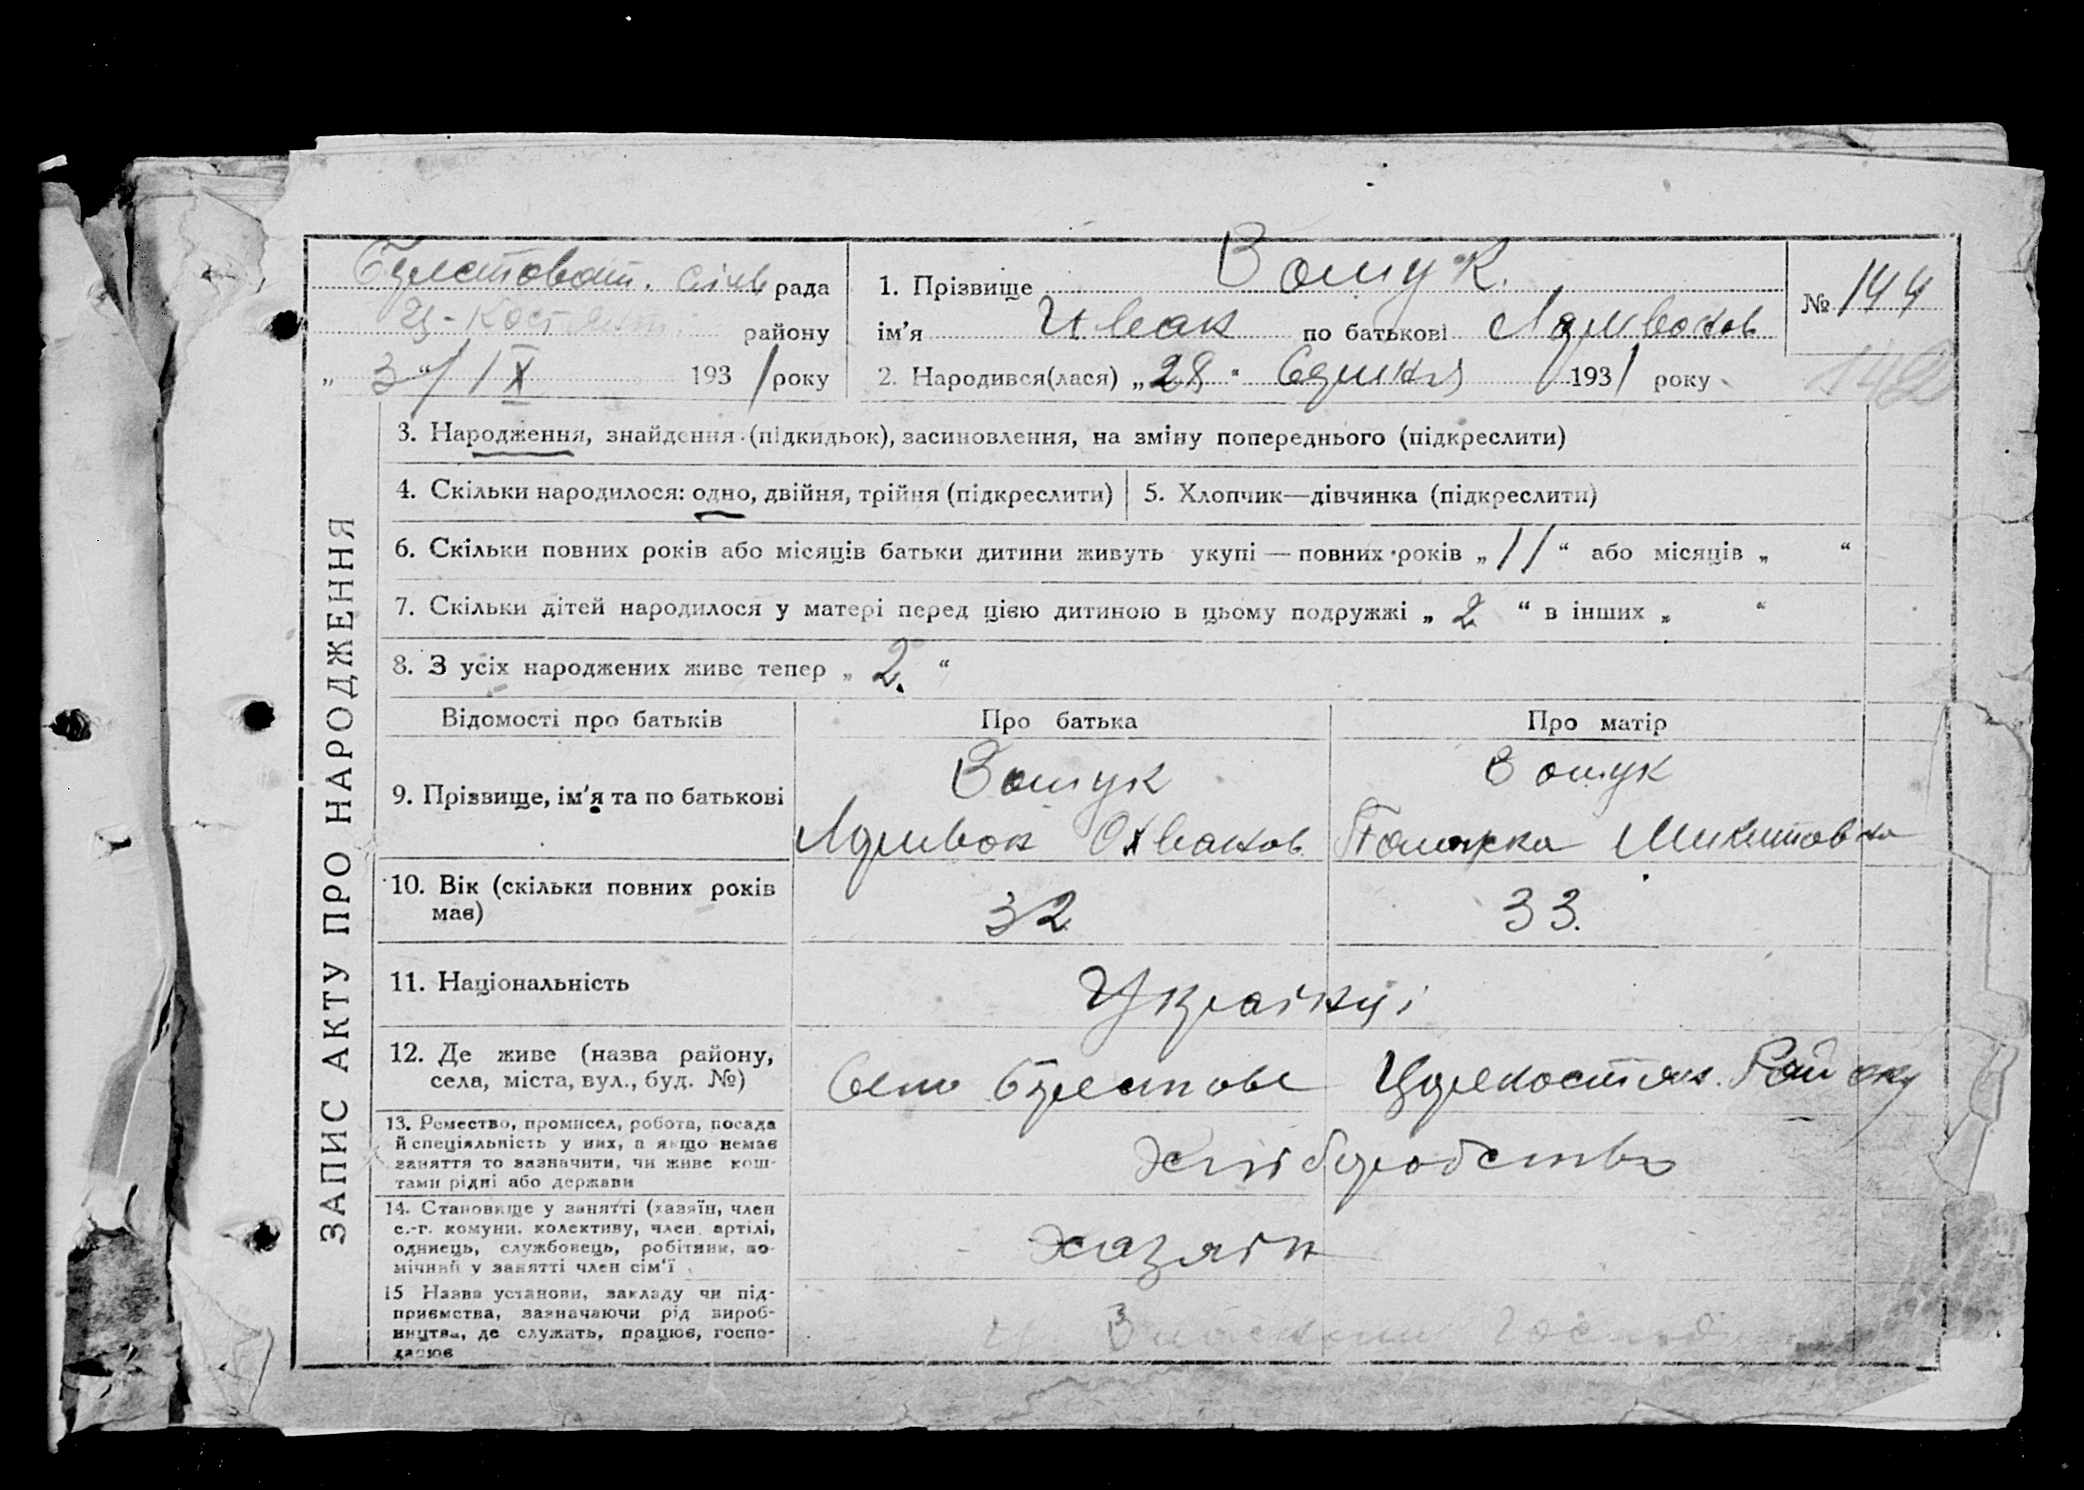 рада
Ц-Костянт.
району
„ 3 “ / IX 1931 року
1. Прізвище Вощук.
ім'я Іван по батькові
2. Народився(лася) „28“ Серпня 1931 року
№ 144
ЗАПИС АКТУ ПРО НАРОДЖЕННЯ
3. Народження, знайдення (підкидьок), засиновлення, на зміну попереднього (підкреслити)
4. Скільки народилося: одно, двійня, трійня (підкреслити)
5. Хлопчик—дівчинка (підкреслити)
6. Скільки повних років або місяців батьки дитини живуть укупі — повних років „ 11 “ або місяців „ “
7. Скільки дітей народилося у матері перед цією дитиною в цьому подружжі „ 2 “ в інших „ “
8. З усіх народжених живе тепер „ 2. “
Відомості про батьків
Про батька
Про матір
9. Прізвище, ім'я та по батькові
Вощук
Вощук
Микитовна
10. Вік (скільки повних років
має)
32
33.
11. Національність
Українці
12. Де живе (назва району,
села, міста, вул., буд. №)
Село Старокостян. Району
13. Ремество, промисел, робота, посада
й спеціяльність у них, а якщо немає
заняття то зазначити, чи живе кош-
тами рідні або держави
Хліборобство
14. Становище у занятті (хазяїн, член
с.-г. комуни, колективу, член артілі,
одинець, службовець, робітник, по-
мічний у занятті член сім'ї
хазяїн
15 Назва установи, закладу чи під-
приємства, зазначаючи рід вироб-
ництва, де служить, працює, госпо-
дарює